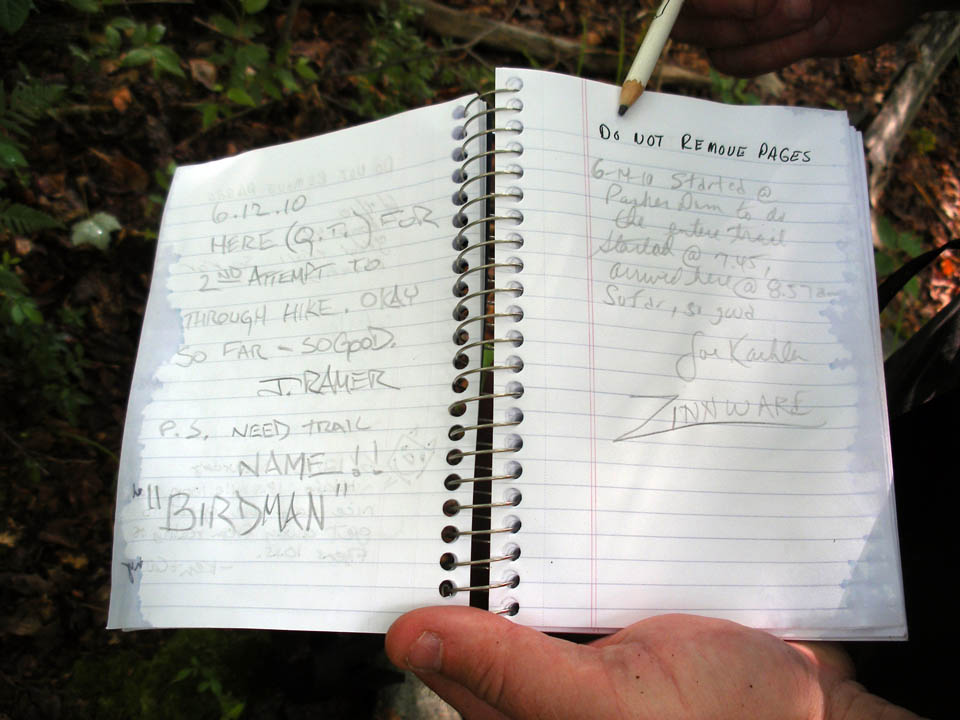 6.12.10
HERE (Q.T.) FOR
2ND ATTEMPT TO
THROUGH HIKE. OKAY
SO FAR – SO GOOD.
J. RAMER
P.S. NEED TRAIL
NAME!!
"BIRDMAN"
DO NOT REMOVE PAGES
Started @
to do
the entire trail
Started @ 7:45,
arrived here @ 8:57am
So far, so good
Joe
ZINXWARE